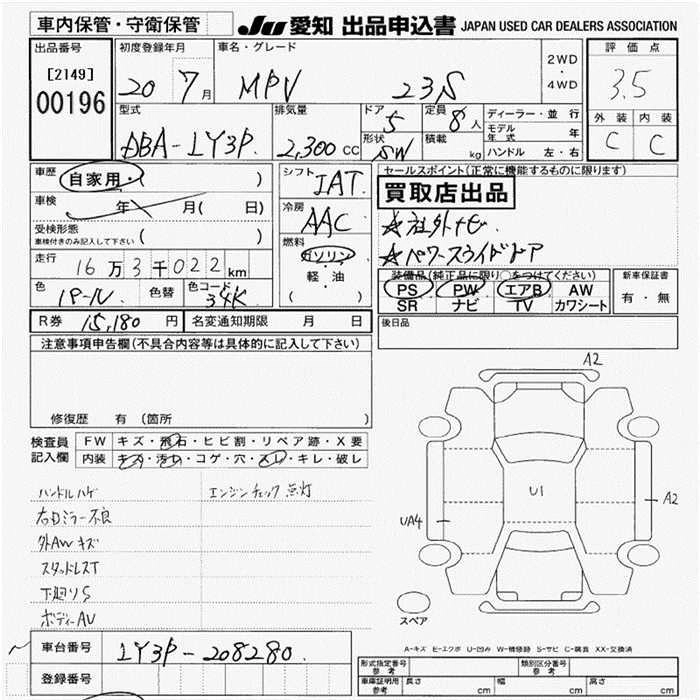 車内保管・守衛保管 JU 愛知 出品申込書 JAPAN USED CAR DEALERS ASSOCIATION
出品番号 初度登録年月 車名・グレード 評価点
[2149] 20 7月 MPV 23S 2WD・4WD 3.5
00196
型式 排気量 ドア 定員 ディーラー・並行 外装 内装
DBA-LY3P 2,300cc 5 8人 モデル年式 年 C C
形状 SW 積載 kg ハンドル 左・右
車歴 自家用・( ) シフト セールスポイント(正常に機能するものに限ります)
JAT 買取店出品
車検 年 月( 日) 冷房 ☆社外ナビ
受検形態 ( ) AAC
車検付きのみ記入して下さい 燃料 ☆パワースライドドア
走行 16万3千022km ガソリン
軽・油 装備品(純正品に限り○をつけてください) 新車保証書
色 パール 色替 色コード 34K ( ) PS PW エアB AW 有・無
SR ナビ TV カワシート
R券 15,180円 名変通知期限 月 日 後日品
注意事項申告欄(不具合内容等は具体的に記入して下さい)
修復歴 有 (箇所 )
検査員記入欄 FW キズ・飛石・ヒビ割・リペア跡・X要
内装 キズ・汚れ・コゲ・穴・スレ・キレ・破レ
ハンドルハゲ エンジンチェック点灯
右ドミラー不良
外AWキズ
スタッドレスT
下廻りS
ボディーAU
A2
U1
A2
UA4
スペア
A-キズ E-エクボ U-凹み W-補修跡 S-サビ C-腐食 XX-交換済
車台番号 LY3P-208280
登録番号
形式指定番号 参考 類別区分番号 参考
車庫証明用 参考 長さ cm 幅 cm 高さ cm